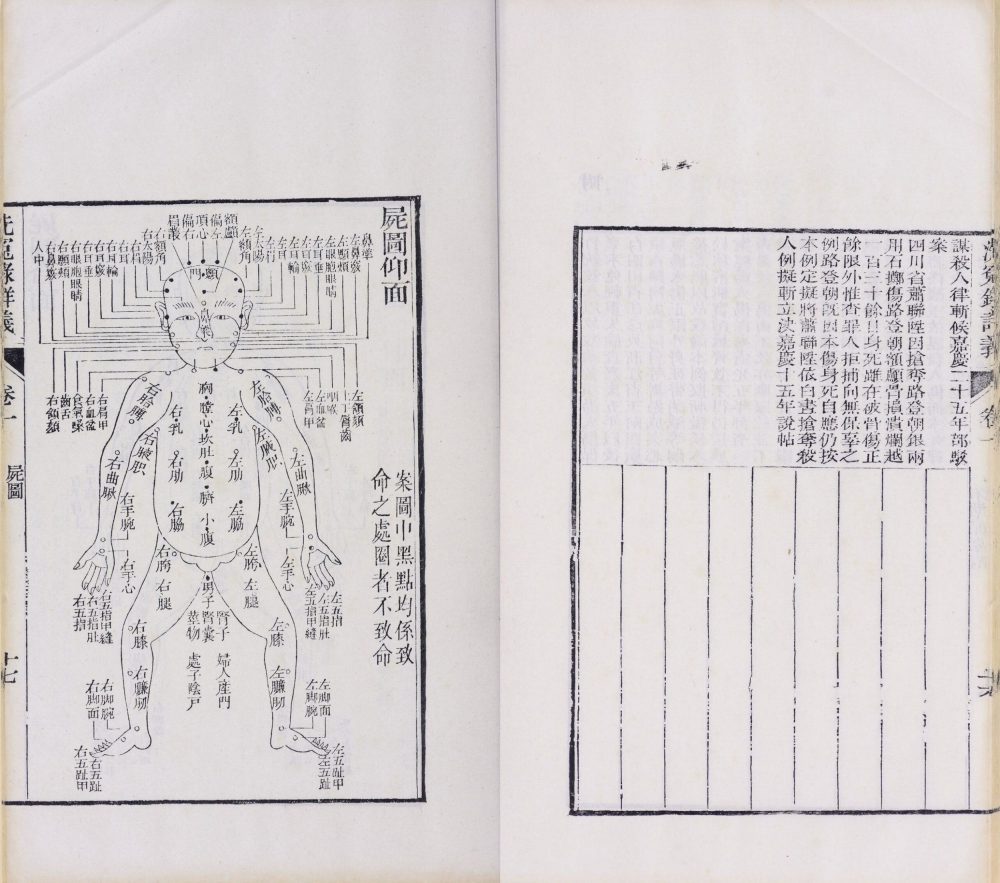 謀殺人律斬候嘉慶二十五年部駁
案
四川省蕭聯陞因搶奪路登朝銀兩
用石擲傷路登朝額顱骨損潰爛越
一百三十餘日身死雖在破骨傷正
餘限外惟查罪人拒捕向無保辜之
例路登朝旣因本傷身死自應仍按
本例定擬將蕭聯陞依白晝搶奪殺
人例擬斬立決嘉慶十五年說帖
屍圖仰面
案圖中黑點均係致
命之處圈者不致命
額顱
偏左
頂心
偏右
眉叢
顖門
鼻準
左鼻竅
左顋頰
左眼胞眼睛
左耳垂
左耳竅
左耳輪
左耳
左太陽
左額角
右額角
右太陽
右耳
右耳輪
右耳竅
右耳垂
右眼胞眼睛
右顋頰
右鼻竅
人中
左頷頦
上下唇齒
左血盆
左肩甲
右肩甲
右血盆
食氣嗓
齒舌
右頷頦
左胳膊
右胳膊
胸膛
心坎
肚腹
臍
小腹
左乳
右乳
左肋
右肋
左脇
右脇
左曲瞅
右曲瞅
左手腕
右手腕
左手心
右手心
左五指
左五指肚
左五指甲縫
右五指甲縫
右五指肚
右五指
左胯
右胯
左腿
右腿
男子腎囊
莖物
腎子
婦人產門
處子陰戸
左膝
右膝
左臁肕
右臁肕
左脚面
左脚腕
右脚腕
右脚面
左五趾甲
左五趾
右五趾
右五趾甲
洗冤錄詳義
卷一
屍圖
十七